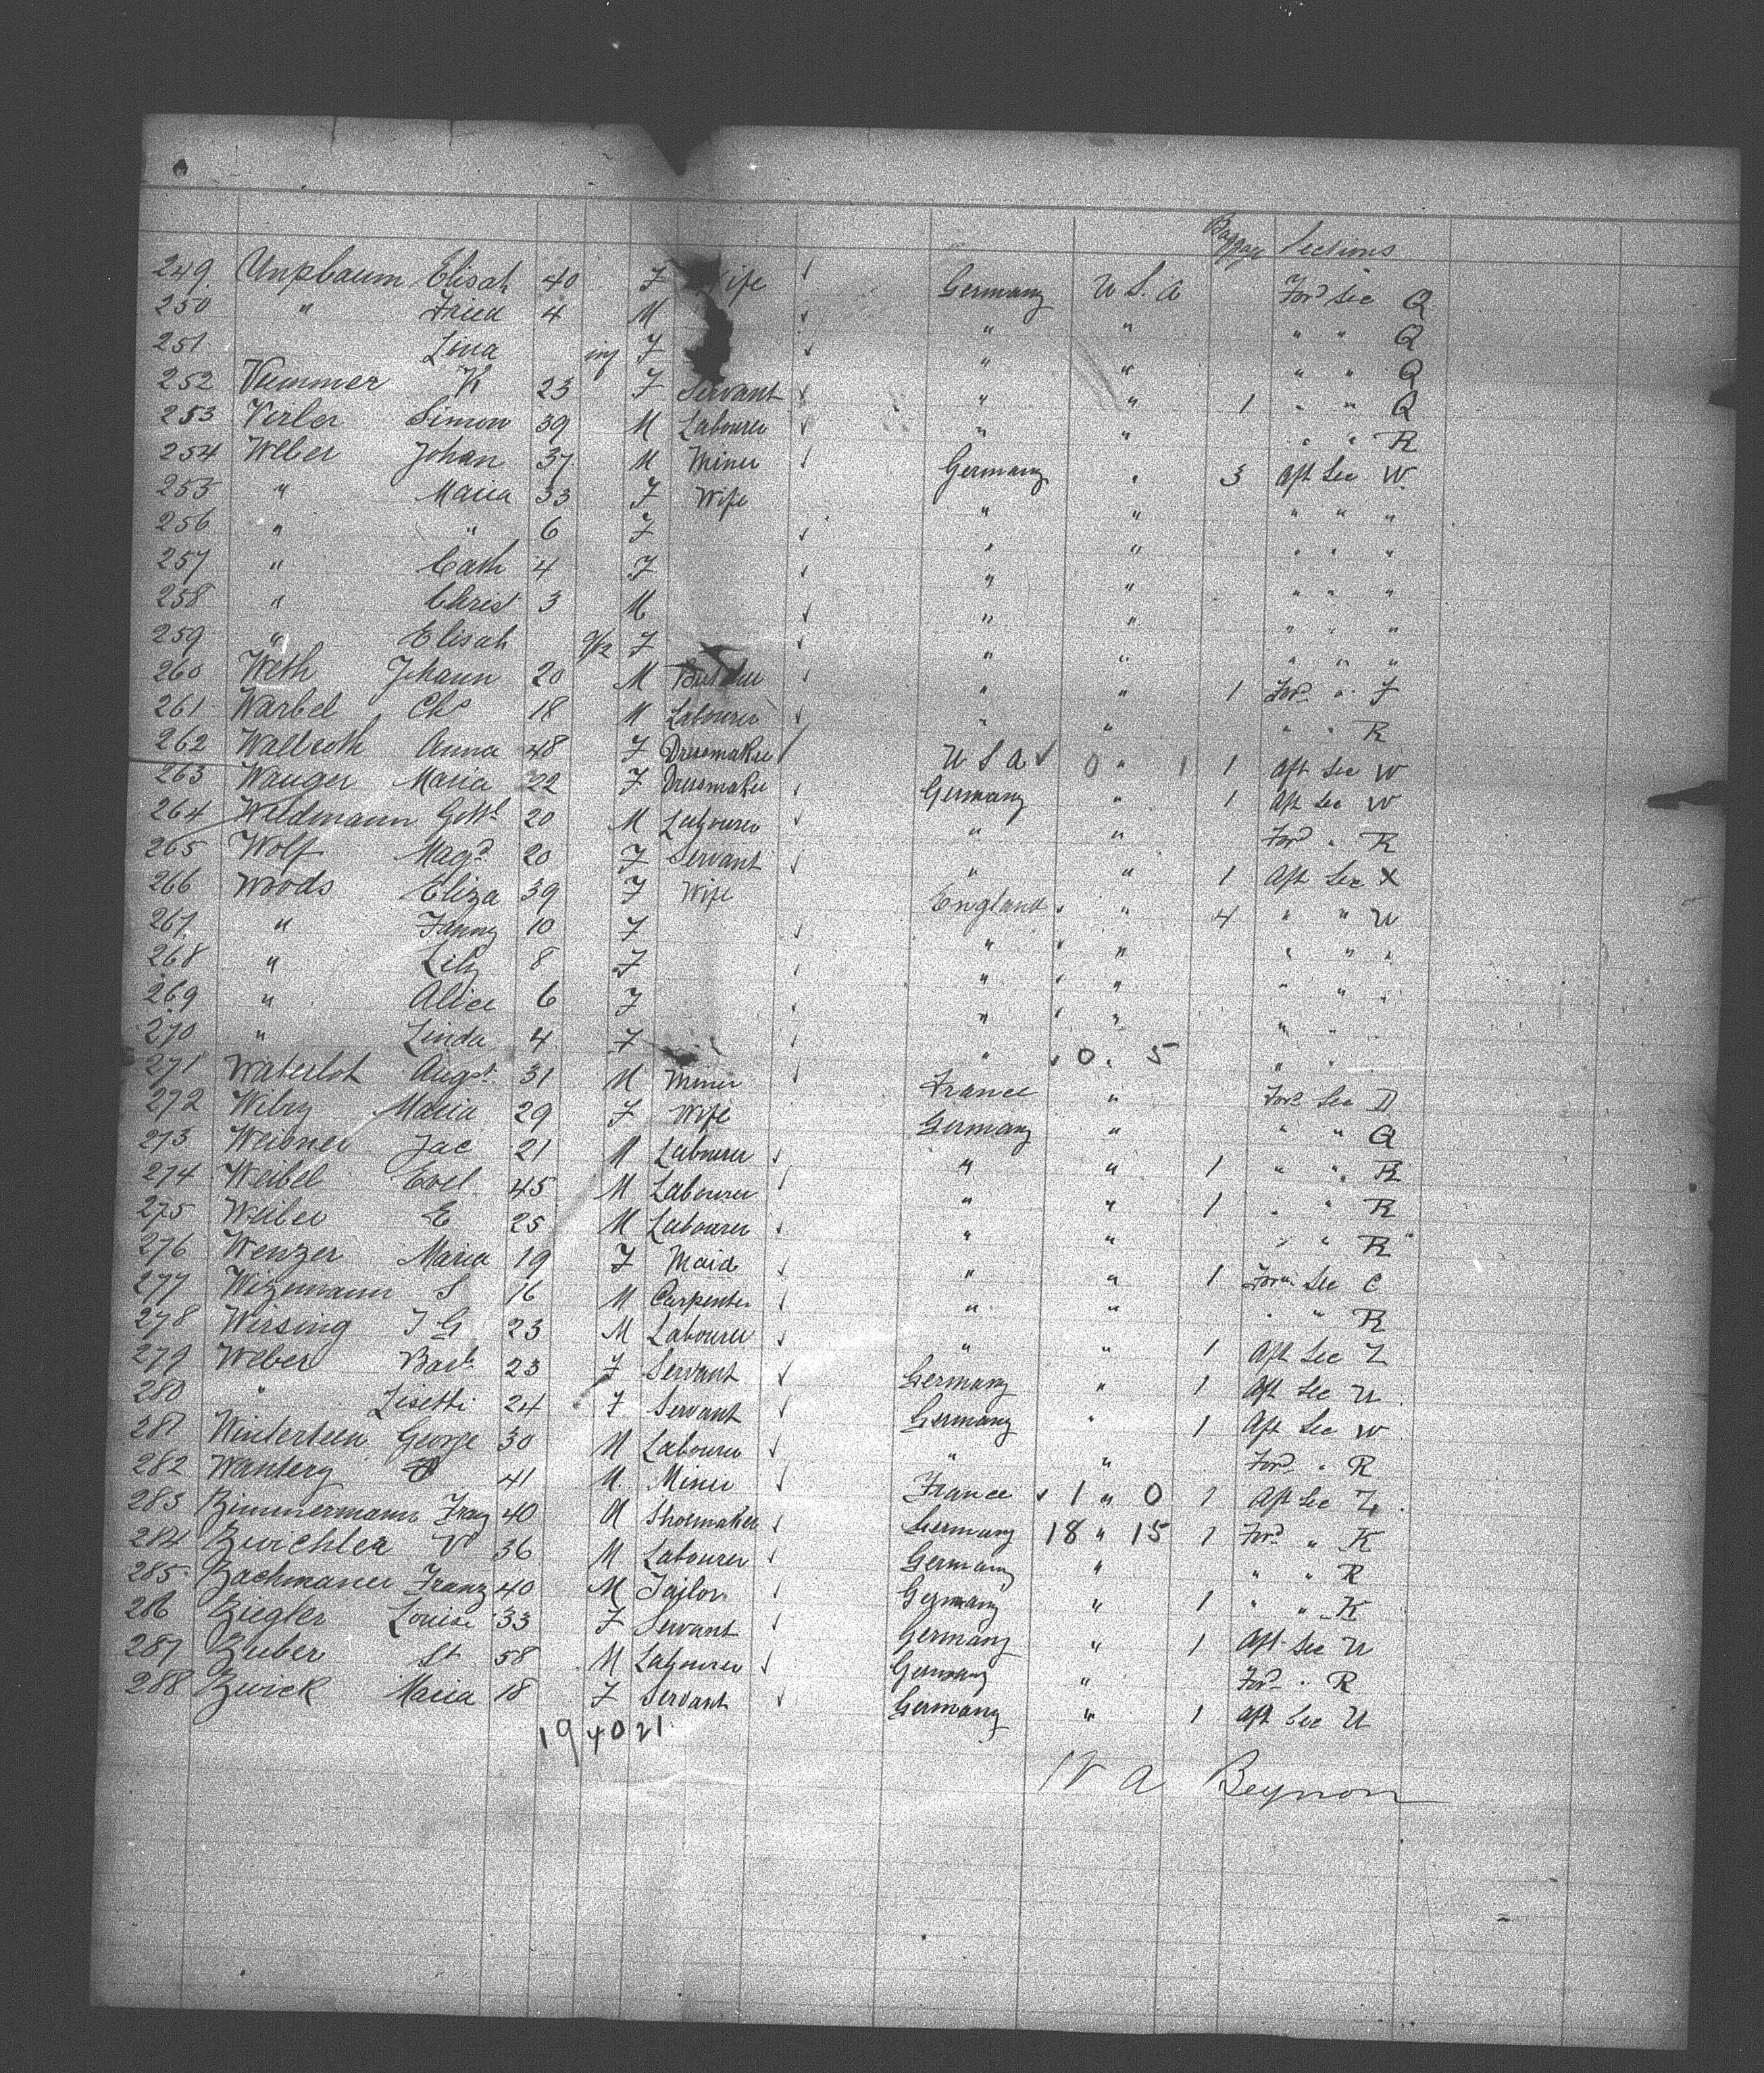 Baggage Sections
249 Unpbaum Elisah 40 F Wife Germany U S. A Ford Sec Q
250 " Fried 4 M " " " " Q
251 Lina inf F " " " " Q
252 Vummer K 23 F Servant " " 1 " " Q
253 Virler Simon 39 M Labourer " " " " R
254 Weber Johan 37 M Miner Germany " 3 Aft Sec W
255 " Maria 33 F Wife " " " " "
256 " " 6 F " " " " "
257 " Cath 4 F " " " " "
258 " Christ 3 M " " " " "
259 " Elisah 9/12 F " " " " "
260 Weth Johann 20 M " " 1 Ford " F
261 Warbel Chs 18 M Labourer " " " " R
262 Wallroth Anna 48 F Dressmaker U S A 0 " 1 1 Aft Sec W
263 Wauger Maria 22 F Dressmaker Germany " 1 Aft Sec W
264 Weldmann Gottl 20 M Labourer " " Ford " R
265 Wolf Magd 20 F Servant " " 1 Aft Sec X
266 Woods Eliza 39 F Wife England " 4 " " U
267 " Fanny 10 F " " " " "
268 " Lily 8 F " " " " "
269 " Alice 6 F " " " "
270 " Linda 4 F " 0 . 5 " "
271 Waterlot Augst 31 M Miner France " Ford Sec D
272 Wibry Maria 29 F Wife Germany " " " Q
273 Weibner Jac 21 M Labourer " " 1 " " R
274 Weibel 45 M Labourer " " 1 " " R
275 Weiber E 25 M Labourer " " " " R
276 Wenzer Maria 19 F Maid " " 1 Forw Sec C
277 Witzemann S 16 M Carpenter " " " " R
278 Wirsing J G 23 M Labourer " " 1 Aft Sec Z
279 Weber Barb 23 F Servant Germany " 1 Aft Sec U
280 " Lisetti 24 F Servant Germany " 1 Aft Sec W
281 Winterteen George 30 M Labourer " " Ford " R
282 Wantery 41 M. Miner France 1 " 0 1 Aft Sec Z
283 Zimmermann Franz 40 M Shoemaker Germany 18 " 15 1 Ford " K
284 Zwichler V 36 M Labourer Germany " " " R
285 Zachmaner Franz 40 M Tailor Germany " 1 " " K
286 Ziegler Louise 33 F Servant Germany " 1 Aft Sec U
287 Zuber St 58 M Labourer Germany " Ford " R
288 Zwick Maria 18 F Servant Germany " 1 Aft Sec U
19 40 21
W A Beynon